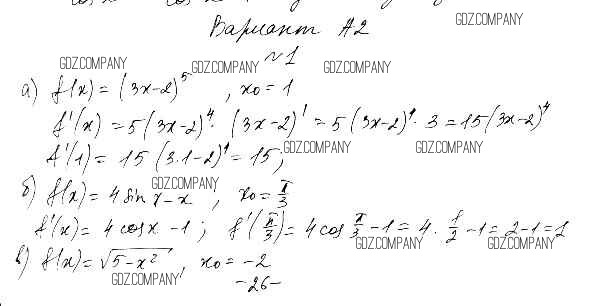 Вариант А2
GDZ.COMPANY
№1
GDZ.COMPANY GDZ.COMPANY GDZ.COMPANY
а) f(x) = (3x-2)^5, x0 = 1
f'(x) = 5(3x-2)^4 · (3x-2)' = 5(3x-2)^4 · 3 = 15(3x-2)^4
f'(1) = 15(3·1-2)^4 = 15;
GDZ.COMPANY GDZ.COMPANY
GDZ.COMPANY
б) f(x) = 4 sin x - x, x0 = π/3
f'(x) = 4 cos x - 1; f'(π/3) = 4 cos π/3 - 1 = 4 · 1/2 - 1 = 2-1 = 1
GDZ.COMPANY GDZ.COMPANY
в) f(x) = √5-x², x0 = -2
GDZ.COMPANY
-26-